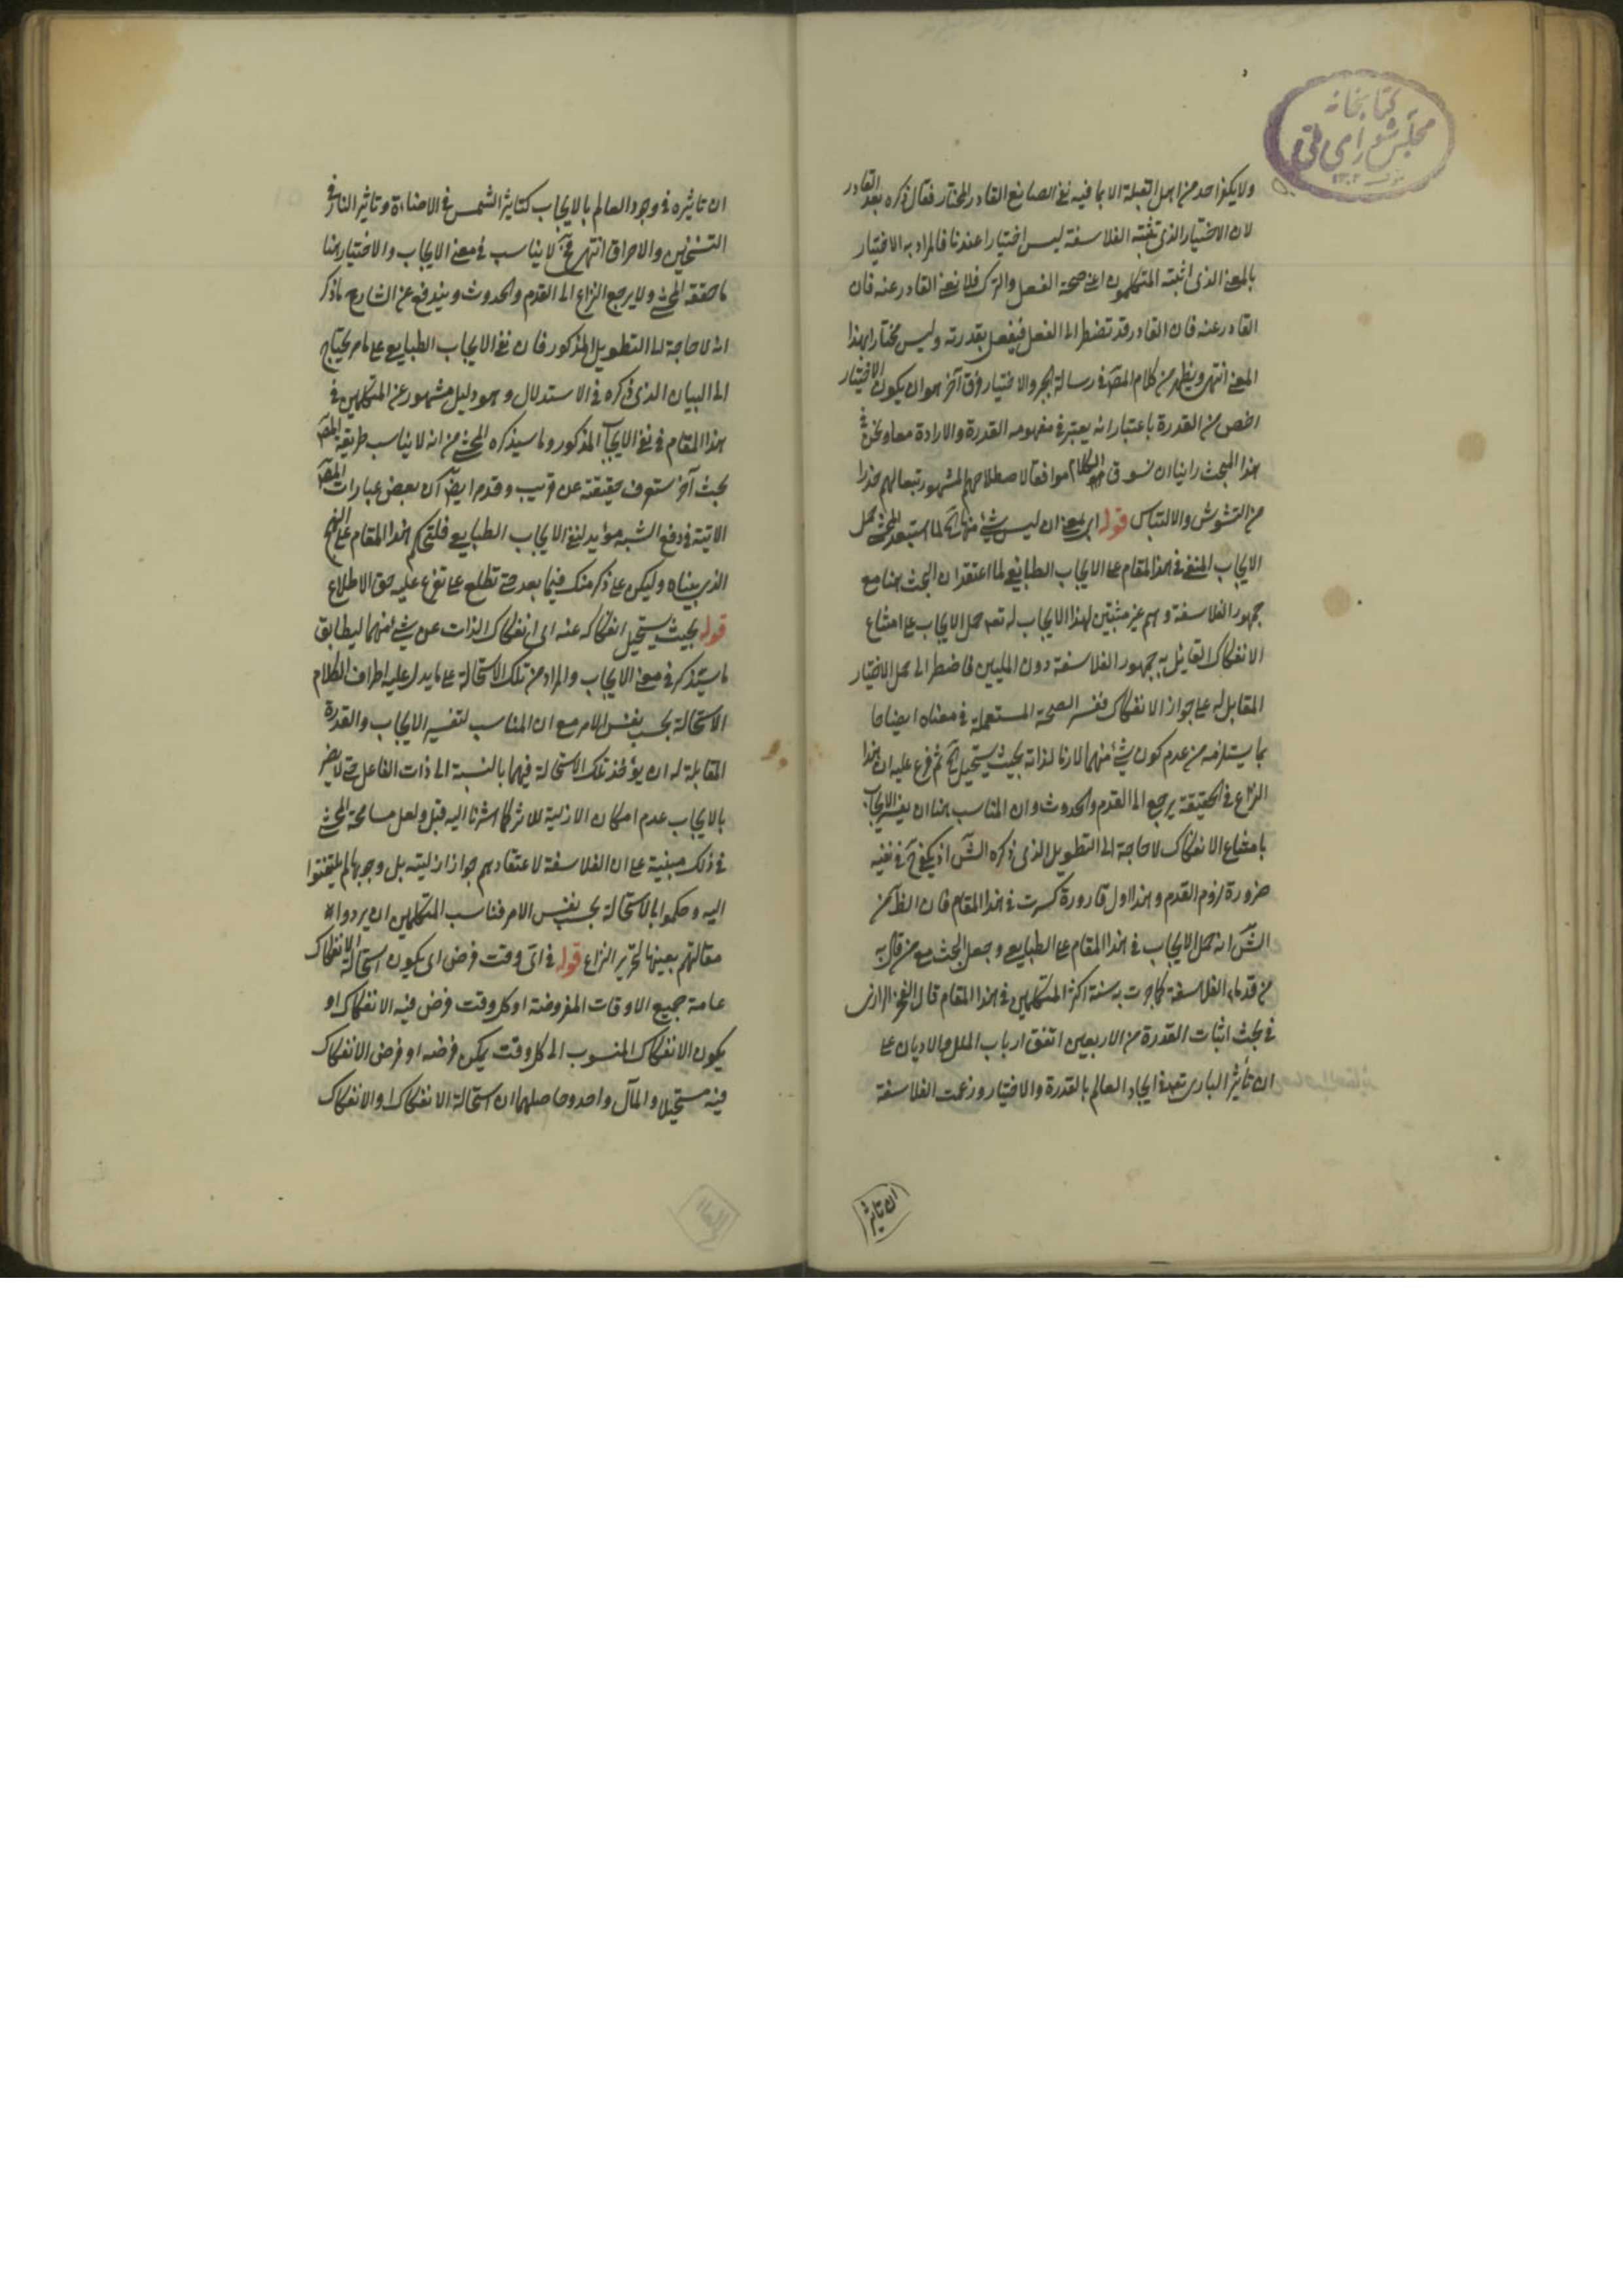 كتابخانه
مجلس شورای ملی
ولا يكفر احد من اهل القبلة الا بما فيه نفى الصانع القادر المختار فقال ذكره بعد القادر
لان الاختيار الذى تثبته الفلاسفة ليس اختيارا عندنا فالمراد به الاختيار
بالمعنى الذى اثبته المتكلمون اعنى صحة الفعل والترك فلا نفى القادر عنه فان
القادر عنه فان القادر قد تضطر الى الفعل فيفعل بقدرته وليس مختارا بهذا
المعنى انتهى ويظهر من كلام المصّ فى رسالة الجبر والاختيار فرق آخر هو ان يكون الاختيار
اخص من القدرة باعتبار انه يعتبر فى مفهومه القدرة والارادة معا ونحن فى
هذا المبحث راينا ان نسوق الكلام موافقا لاصطلاحهم المشهور تبعا لهم حذرا
من التشوش والالتباس قوله اى بمعنى ان ليس شئ منها الخ لما استبعد المحشى حمل
الايجاب المنفى فى هذا المقام على الايجاب الطبايعى لما اعتقد ان البحث هنا مع
جمهور الفلاسفة وهم غير مثبتين لهذا الايجاب له تعـ حمل الايجاب على امتناع
الانفكاك القائل به جمهور الفلاسفة دون المليين فاضطر الى حمل الاختيار
المقابل له على جواز الانفكاك ففسر الصحة المستعملة فى معناه ايضاحا
بما يستلزمه من عدم كون شئ منهما لازما لذاته بحيث يستحيل الخ ثم فرع عليه ان هذا
النزاع فى الحقيقة يرجع الى القدم والحدوث وان المناسب هنا ان يفسر الايجاب
بامتناع الانفكاك لا حاجة الى التطويل الذى ذكره الشّ اذ يكفى حّ فى نفيه
ضرورة لزوم القدم وهذا اول قارورة كسرت فى هذا المقام فان الظّ من
الشّ انه حمل الايجاب فى هذا المقام على الطبايعى وجعل البحث مع من قال به
من قدماء الفلاسفة كما جرت به سنة اكثر المتكلمين فى هذا المقام قال الفخر الرازى
فى بحث اثبات القدرة من الاربعين اتفق ارباب الملل والاديان على
ان تأثير البارى تعـ فى ايجاد العالم بالقدرة والاختيار وزعمت الفلاسفة
ان تاثير
ان تاثيره فى وجود العالم بالايجاب كتاثير الشمس فى الاضاءة وتاثير النار فى
التسخين والاحراق انتهى فحّ لا يناسب فى معنى الايجاب والاختيار هنا
ما حققه المحشى ولا يرجع النزاع الى القدم والحدوث ويندفع عن الشارح ما ذكر
انه لا حاجة له الى التطويل المذكور فان نفى الايجاب الطبايعى على ما مر يحتاج
الى البيان الذى ذكره فى الاستدلال وهو دليل مشهور عن المتكلمين فى
هذا المقام فى نفى الايجاب المذكور وما سيذكره المحشى من انه لا يناسب طريقة المصّ
بحث آخر ستعرف حقيقته عن قريب وقد مر ايضّ ان بعض عبارات المصّ
الاتية فى دفع الشبه مؤيد لنفى الايجاب الطبايعى فلتحكم هذا المقام على النهج
الذى بيناه وليكن على ذكر منك فيما بعد حتى تطلع على تفرع عليه حق الاطلاع
قوله بحيث يستحيل انفكاكه عنه اى انفكاك الذات عن شئ منهما ليطابق
ما سيذكر فى معنى الايجاب والمراد من تلك الاستحالة على ما يدل عليه اطراف الكلام
الاستحالة بحسب نفس الامر مع ان المناسب لتفسير الايجاب والقدرة
المقابلة له ان يؤخذ تلك الاستحالة فيهما بالنسبة الى ذات الفاعل حتى لا يضر
بالايجاب عدم امكان الازلية للاثر كما اشرنا اليه قبل ولعل مسامحة المحشى
فى ذلك مبنية على ان الفلاسفة لاعتقادهم جواز ازليته بل وجوبها لم يلتفتوا
اليه وحكموا بالاستحالة بحسب نفس الامر فناسب المتكلمين ان يردوا
مقالتهم بعينها لتحرير النزاع قوله فى اى وقت فرض اى يكون استحالة الانفكاك
عامة جميع الاوقات المفروضة او كل وقت فرض فيه الانفكاك او
يكون الانفكاك المنسوب الى كل وقت يمكن فرضه او فرض الانفكاك
فيه مستحيلا والمآل واحد وحاصلهما ان استحالة الانفكاك او الانفكاك